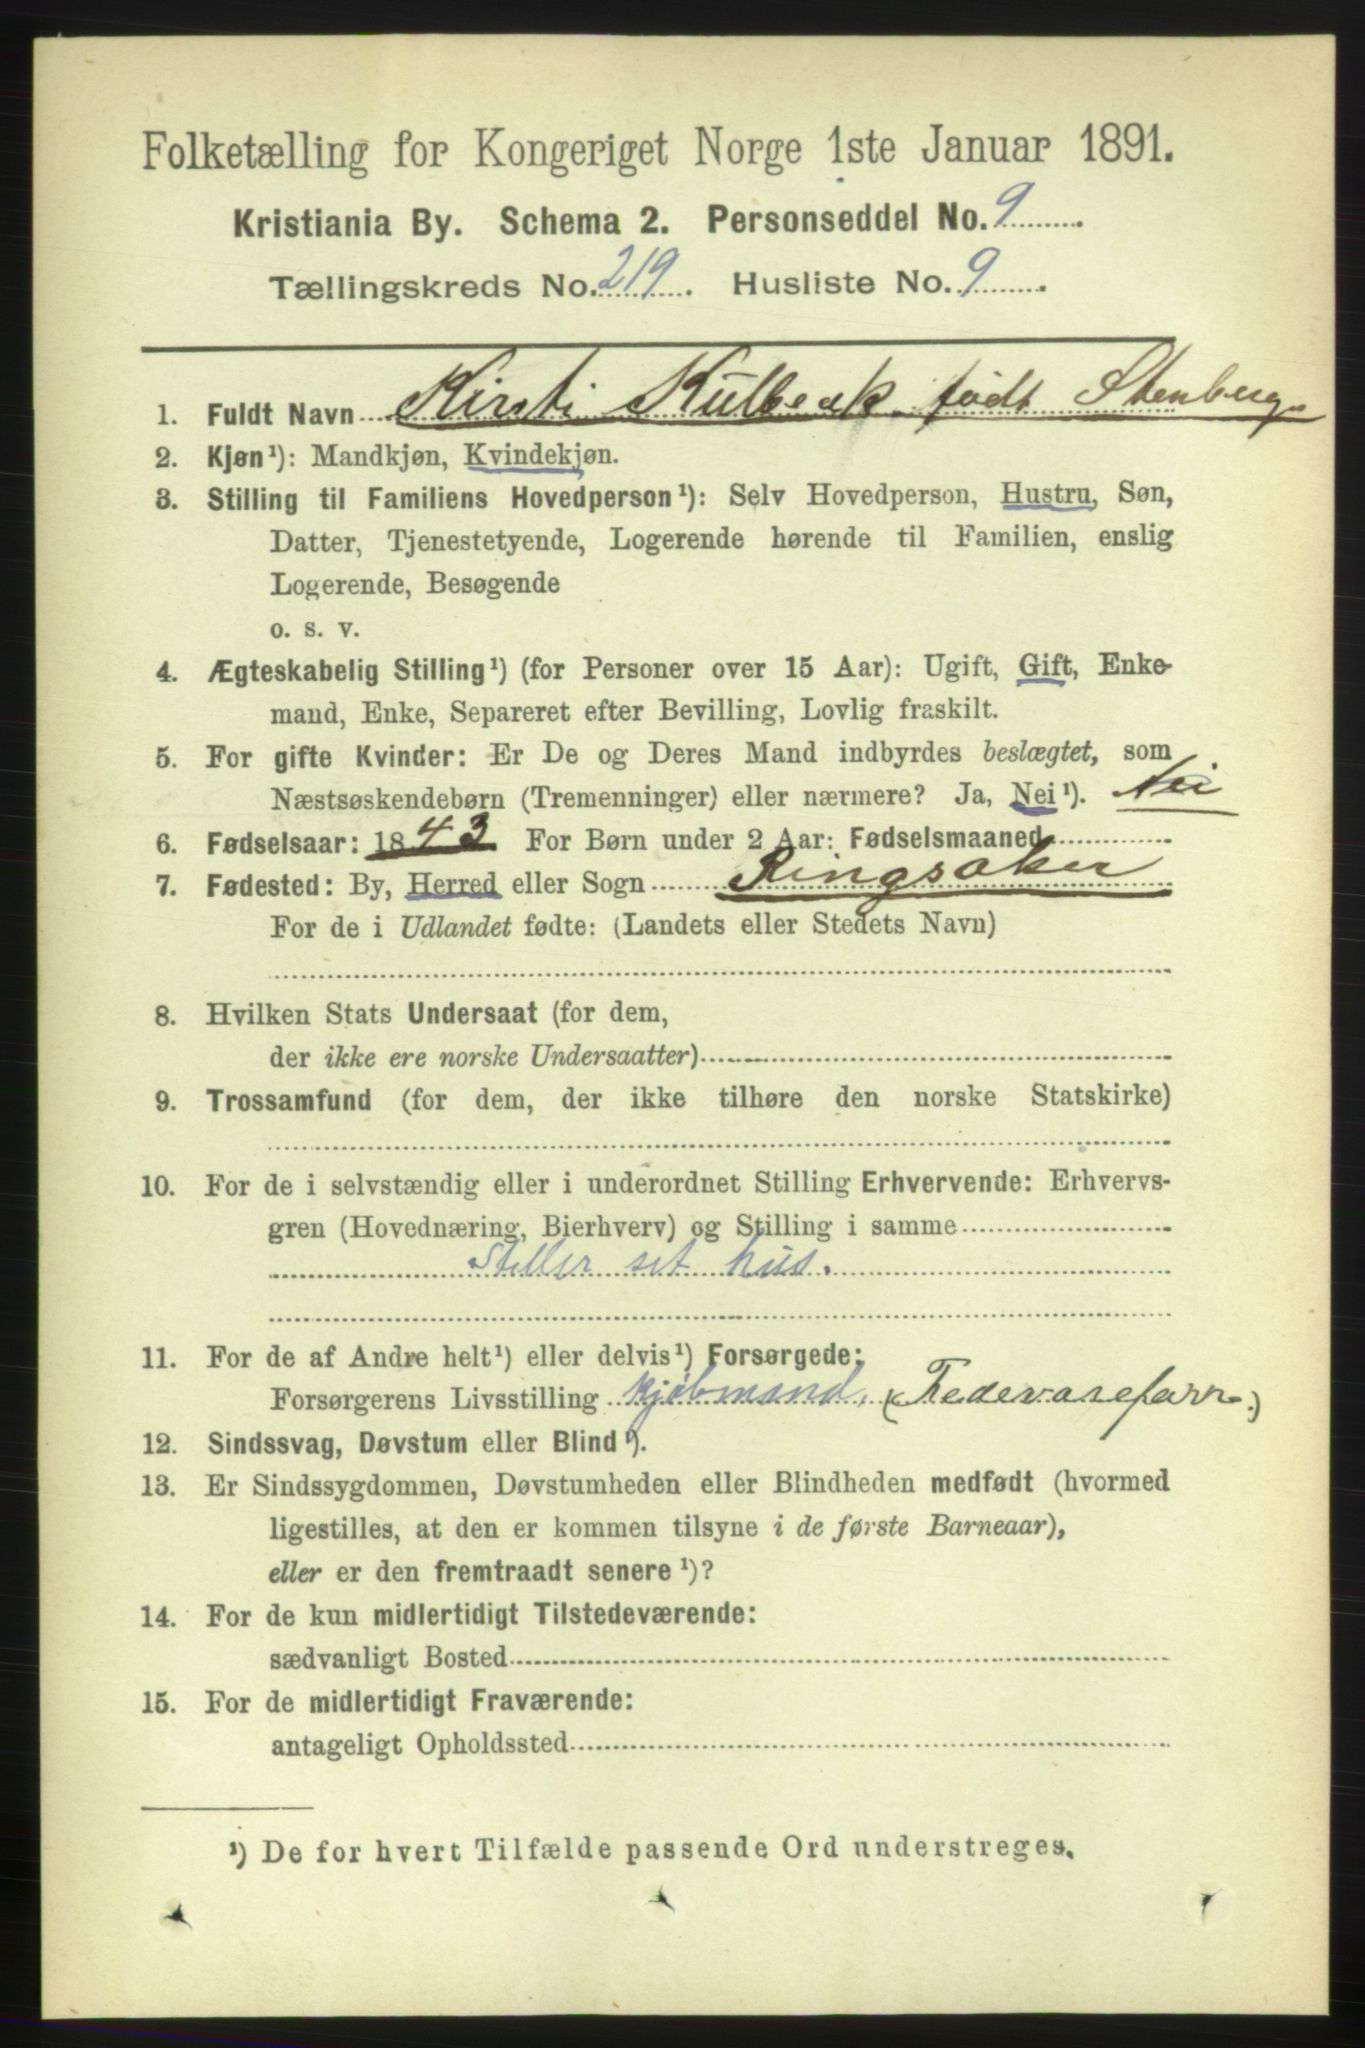 Folketælling for Kongeriget Norge 1ste Januar 1891.
Kristiania By. Schema 2. Personseddel No. 9
Tællingskreds No. 219. Husliste No. 9.
1. Fuldt Navn Kirsti Kulbeck født Stenberg.
2. Kjøn¹): Mandkjøn, Kvindekjøn.
3. Stilling til Familiens Hovedperson¹): Selv Hovedperson, Hustru, Søn,
Datter, Tjenestetyende, Logerende hørende til Familien, enslig
Logerende, Besøgende
o. s. v.
4. Ægteskabelig Stilling¹) (for Personer over 15 Aar): Ugift, Gift, Enke-
mand, Enke, Separeret efter Bevilling, Lovlig fraskilt.
5. For gifte Kvinder: Er De og Deres Mand indbyrdes beslægtet, som
Næstsøskendebørn (Tremenninger) eller nærmere? Ja, Nei¹). Nei
6. Fødselsaar: 1843 For Børn under 2 Aar: Fødselsmaaned
7. Fødested: By, Herred eller Sogn Ringsaker
For de i Udlandet fødte: (Landets eller Stedets Navn)
8. Hvilken Stats Undersaat (for dem,
der ikke ere norske Undersaatter)
9. Trossamfund (for dem, der ikke tilhøre den norske Statskirke)
10. For de i selvstændig eller i underordnet Stilling Erhvervende: Erhvervs-
gren (Hovednæring, Bierhverv) og Stilling i samme
Steller set hus.
11. For de af Andre helt¹) eller delvis¹) Forsørgede:
Forsørgerens Livsstilling Kjøbmand, (Fedevareforr.)
12. Sindssvag, Døvstum eller Blind¹).
13. Er Sindssygdommen, Døvstumheden eller Blindheden medfødt (hvormed
ligestilles, at den er kommen tilsyne i de første Barneaar),
eller er den fremtraadt senere¹)?
14. For de kun midlertidigt Tilstedeværende:
sædvanligt Bosted
15. For de midlertidigt Fraværende:
antageligt Opholdssted
¹) De for hvert Tilfælde passende Ord understreges.